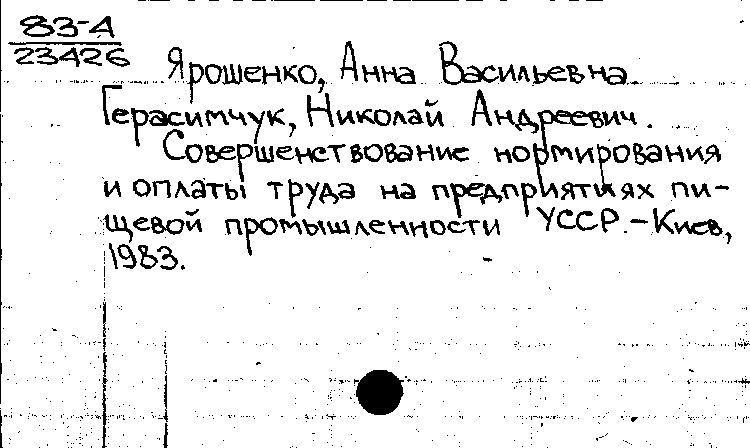 83-4
23426
Ярошенко, Анна Васильевна.
Герасимчук, Николай Андреевич.
Совершенствование нормирования
и оплаты труда на предприятиях пи-
щевой промышленности УССР.-Киев,
1983.